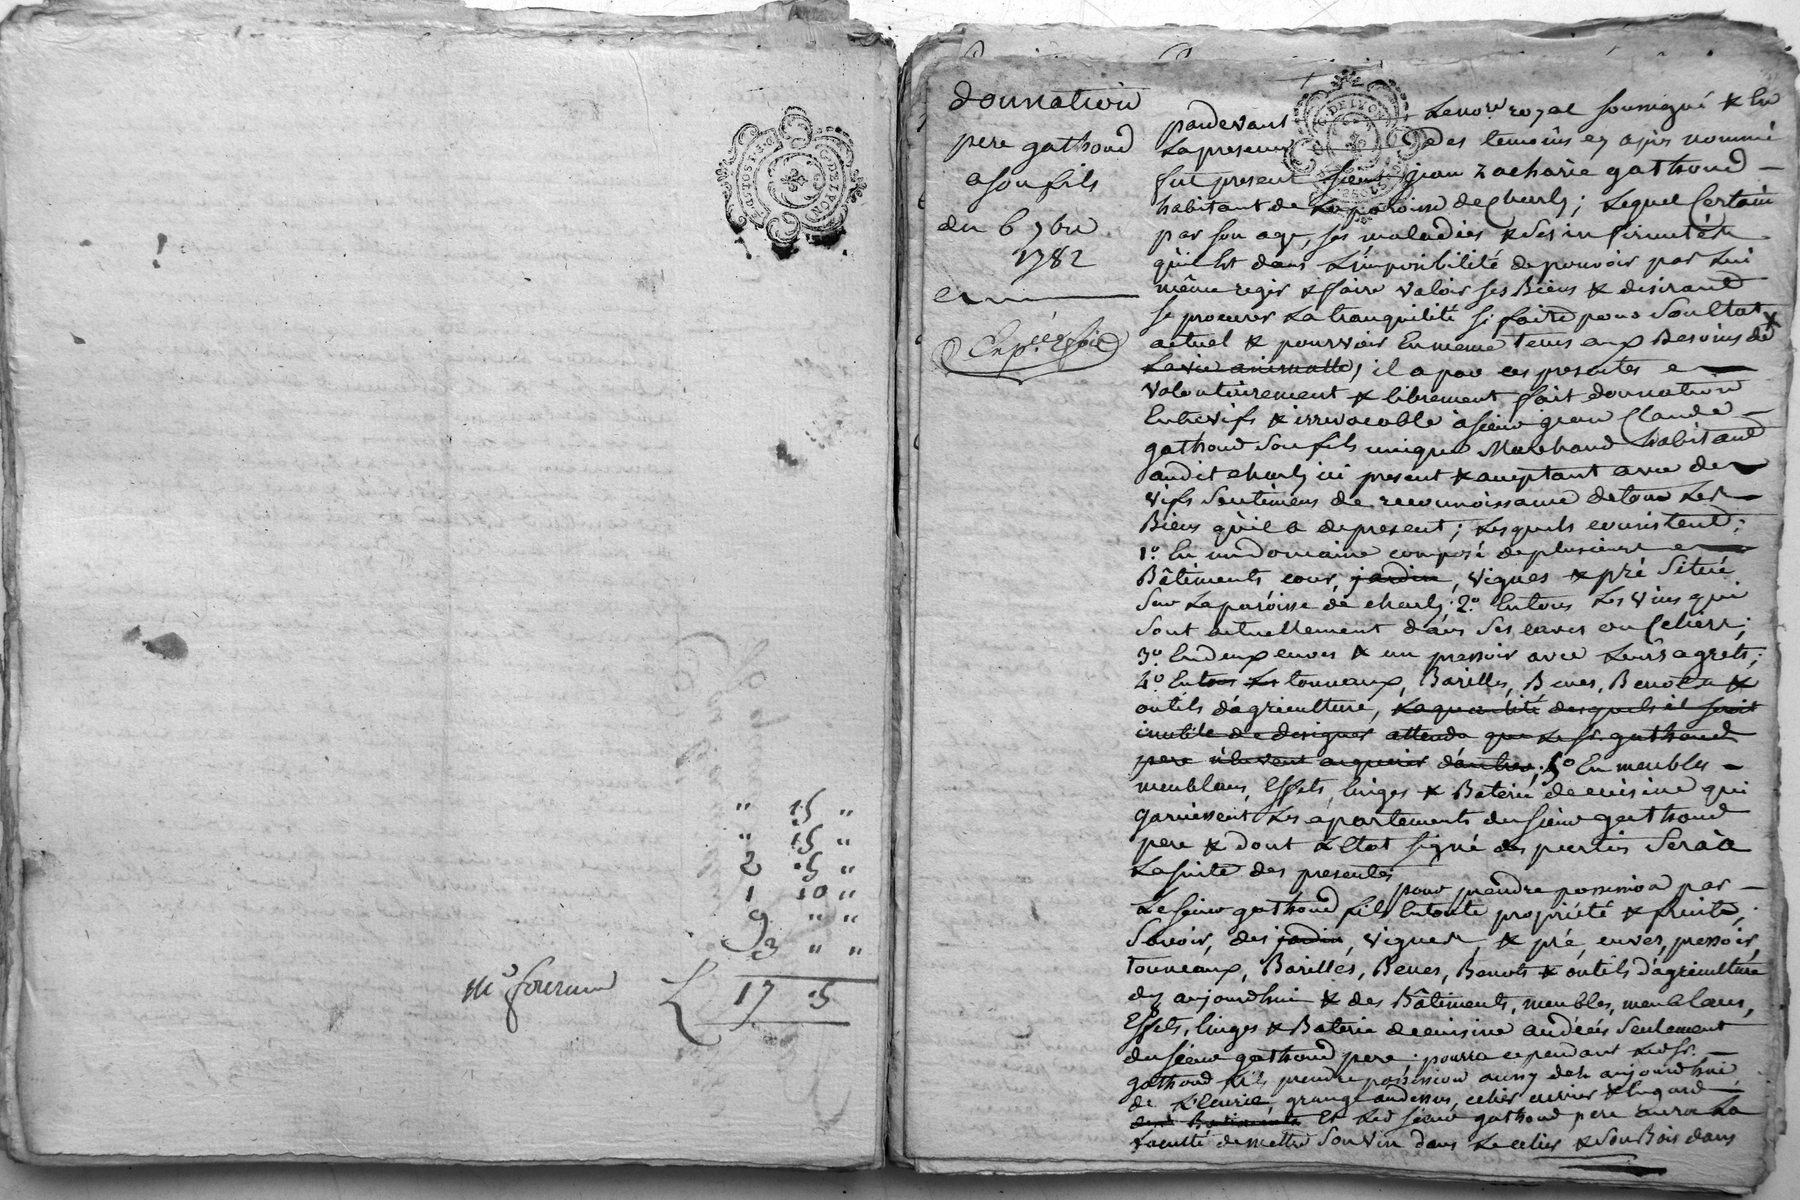 G. DE LYON
" 15 "
" 15 "
2 5 "
1 10 "
9 " "
3 " "
L 17 5
donnation
pere gathoud
a son fils
du 6 7bre
1782
Expédiée
pardevant Le no.re royal soussigné & En
La presence des temoins cy après nommé
fut present sieur jean zacharie gathoud
habitant de La paroisse de Charly; Lequel Certain
par son age, ses maladies & ses infirmités
qu'il Est dans L'impossibilité de pouvoir par Lui
même regir & faire valoir ses Biens & desirant
se procurer La tranquilité si faite pour son Etat
actuel & pourvoir En meme tems aux Besoins de
La vie animalle, il a par ces presentes
volontairement & librement fait donnation
Entrevifs & irrevocable à sieur jean Claude
gathoud son fils unique Marchand habitant
audit charly ici present & acceptant avec de
vifs sentimens de reconnoissance de tous Les
Biens qu'il a de present; Lesquels consistent:
1.o En un domaine composé de plusieurs
Bâtiments, cour, jardin, vignes & pré Situé
Sur La paroisse de charly; 2.o En tous Les vins qui
sont actuellement dans ses caves ou Celiers;
3.o En deux cuves & un pressoir avec Leurs agrets;
4.o En tous Les tonneaux, Barilles, Benes, Benots &
outils d'agriculture, La quantité desquels il seroit
inutile de designer attendu que Le Sr. gathoud
pere n'en veut acquerir d'autres; 5.o En meubles
meublans, Effets, linges & Baterie de cuisine qui
garnissent Les apartements du sieur gathoud
pere & dont L'Etat signé des parties Sera à
La suite des presentes
pour prendre possession par
Le sieur gathoud fils En toute propriété & fruits,
Savoir, des jardin, vignes, & pré, cuves, pressoir,
tonneaux, Barilles, Benes, Benots & outils d'agriculture
dez aujourdhui & des Bâtiments, meubles, meublans,
Effets, linges & Baterie de cuisine au décès seulement
du sieur gathoud pere; pourra cependant Led. Sr.
gathoud fils prendre possession aussy dez aujourdhui
de L'Ecurie, grange audessus, celier, cuvier & hangard
des Batiments Et Led. sieur gathoud pere aura La
faculté de mettre Son vin dans Le celier & son Bois dans